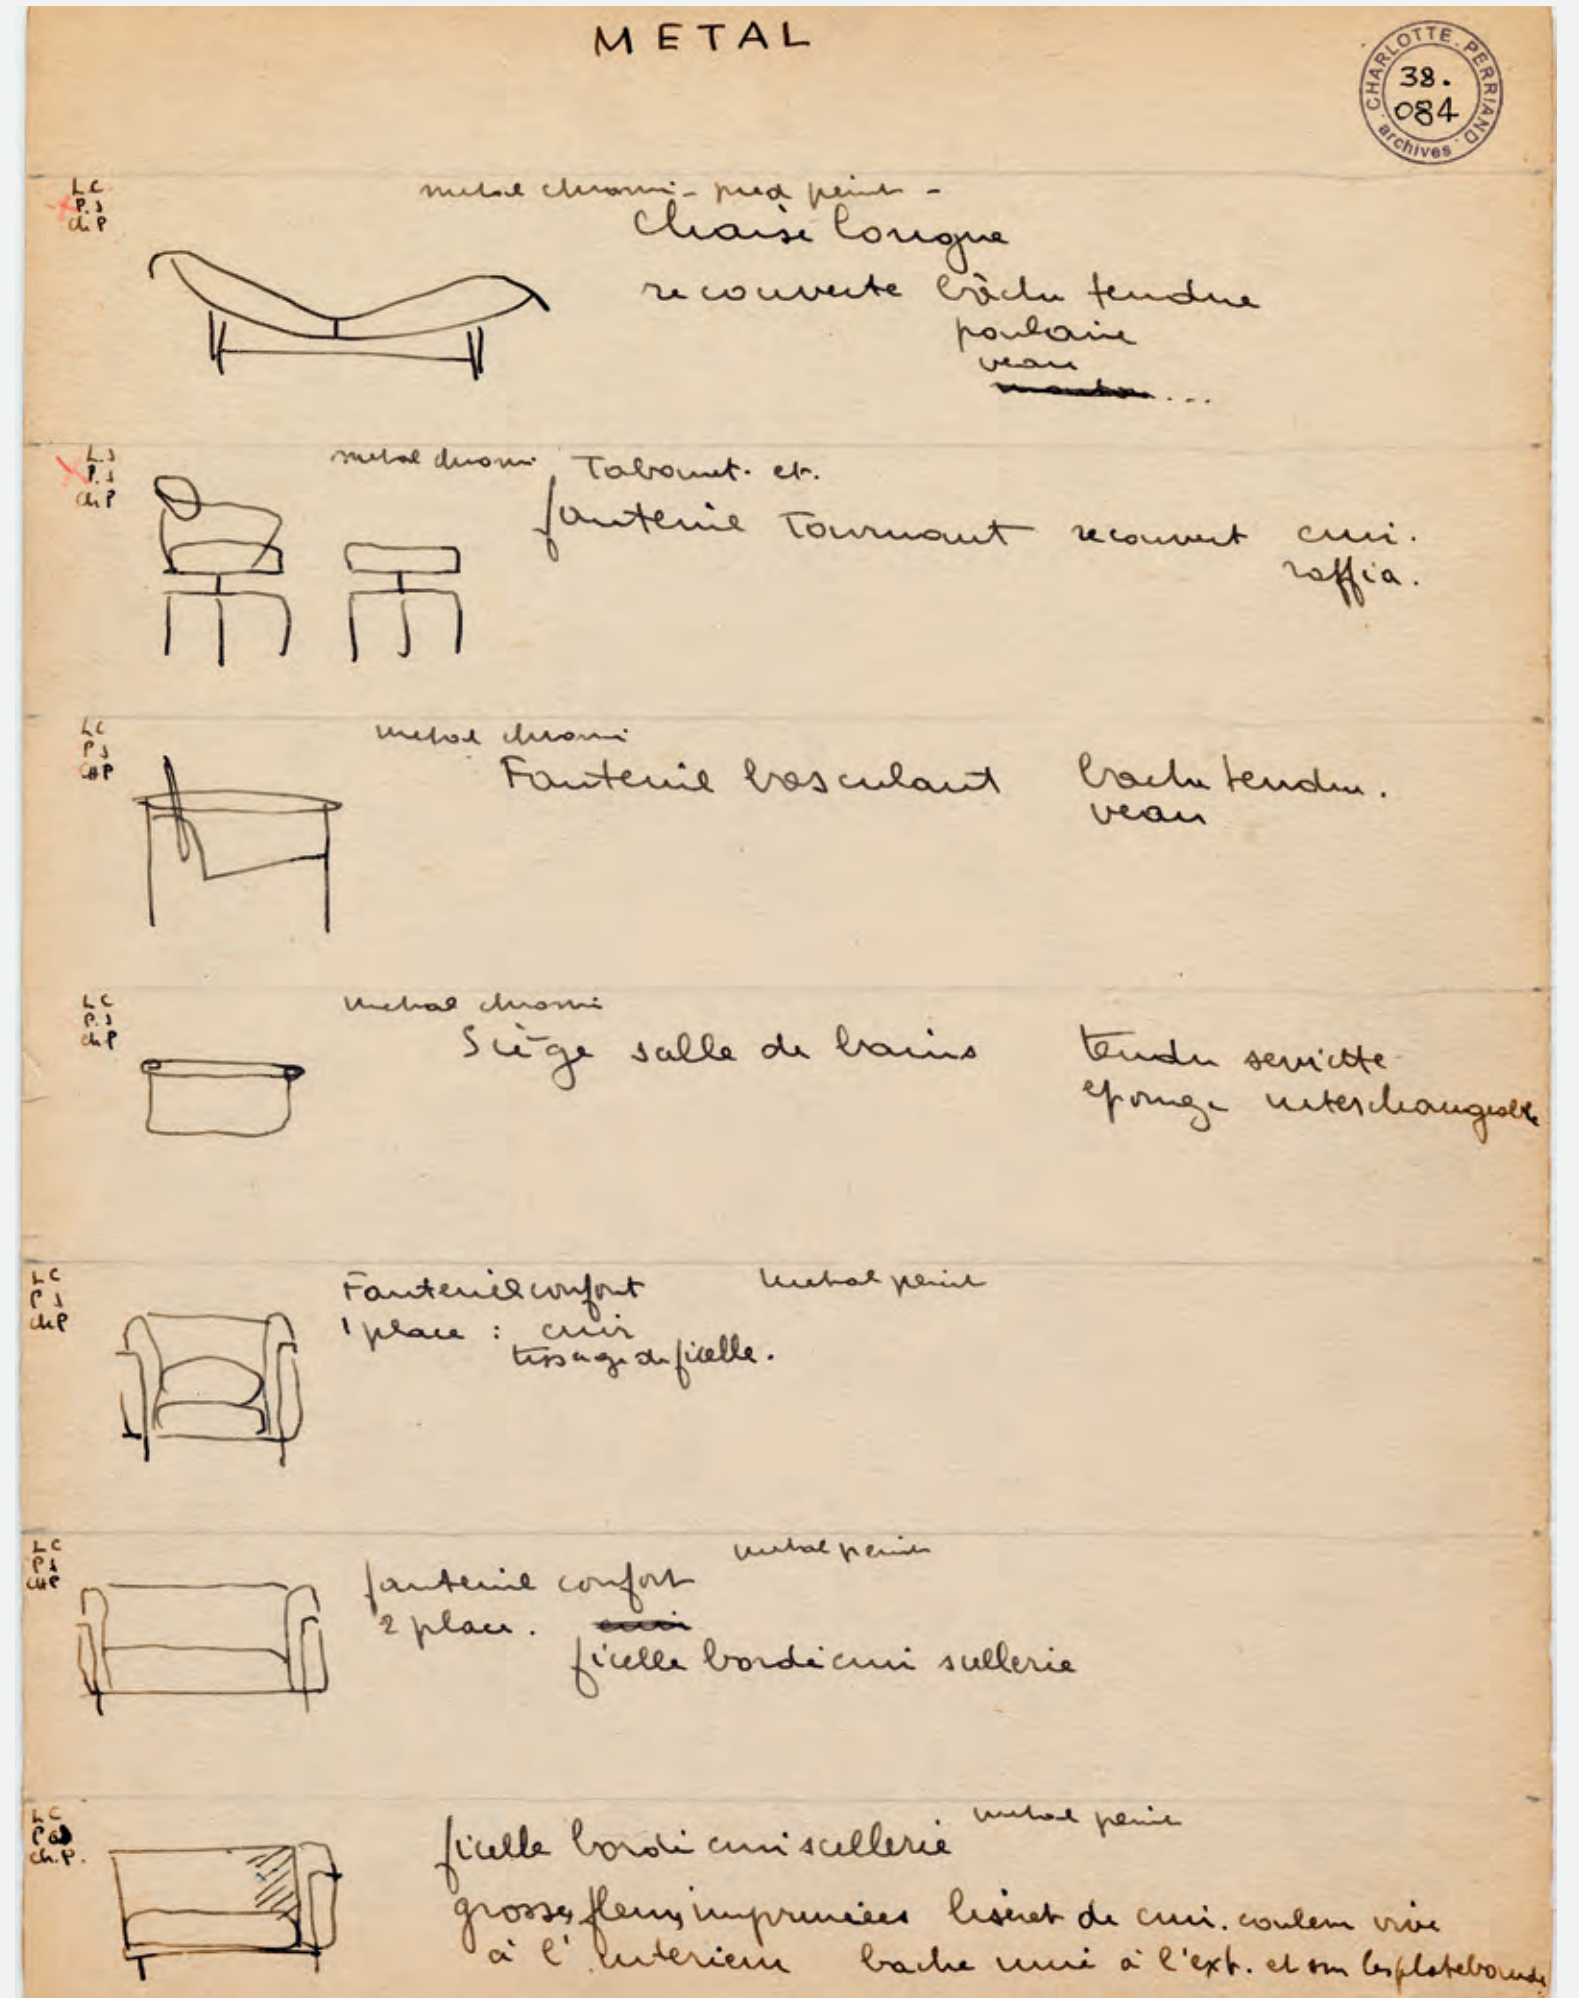 METAL
CHARLOTTE PERRIAND archives
38.
084
LC
P.J
ch P
metal chromé - pied peint -
Chaise longue
recouverte bâche tendue
poulain
veau
mouton...
L.J
P.J
ch P
metal chromé Tabouret. et.
fauteuil Tournant recouvert cuir.
raffia.
LC
PJ
CHP
metal chromé
Fauteuil basculant bache tendue.
veau
LC
P.J
ch P
metal chromé
Siège salle de bains tendu serviette
eponge interchangeable
LC
PJ
chP
Fauteuil confort metal peint
1 place : cuir
tissage de ficelle.
LC
PJ
CHP
metal peint
fauteuil confort
2 place. cuir
ficelle bordé cuir sellerie
LC
ch.P.
ficelle bordé cuir scellerie metal peint
grosses fleurs imprimées liseret de cuir. couleur vive
à l'interieur bache unie à l'ext. et sur les platebandes